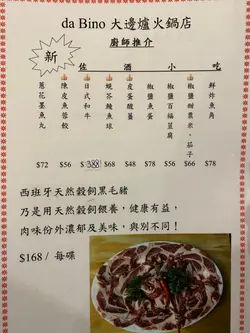 da Bino 大邊爐火鍋店
廚師推介
新
佐酒小吃
蔥花墨魚丸
陳皮魚蓉餃
日式和牛
魚球
皮蛋酸薑
椒鹽魚
椒鹽百福豆腐
椒鹽粟米、茄子
鮮炸魚角
$72 $56 $388 $68 $48 $78 $56 $66 $78
西班牙天然穀飼黑毛豬
乃是用天然穀飼餵養，健康有益，
肉味份外濃郁及美味，與別不同！
$168 / 每碟